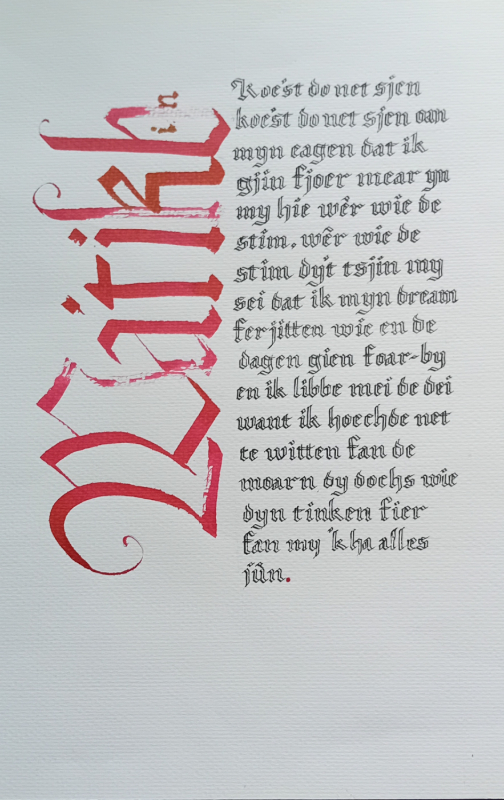 Koe'st do net sjen
koe'st do net sjen oan
myn eagen dat ik
gjin fjoer mear yn
my hie wêr wie de
stim. wêr wie de
stim dy't tsjin my
sei dat ik myn dream
ferjitten wie en de
dagen gien foar-by
en ik libbe mei de dei
want ik hoechde net
te witten fan de
moarn dy dochs wie
dyn tinken fier
fan my 'k ha alles
jûn.